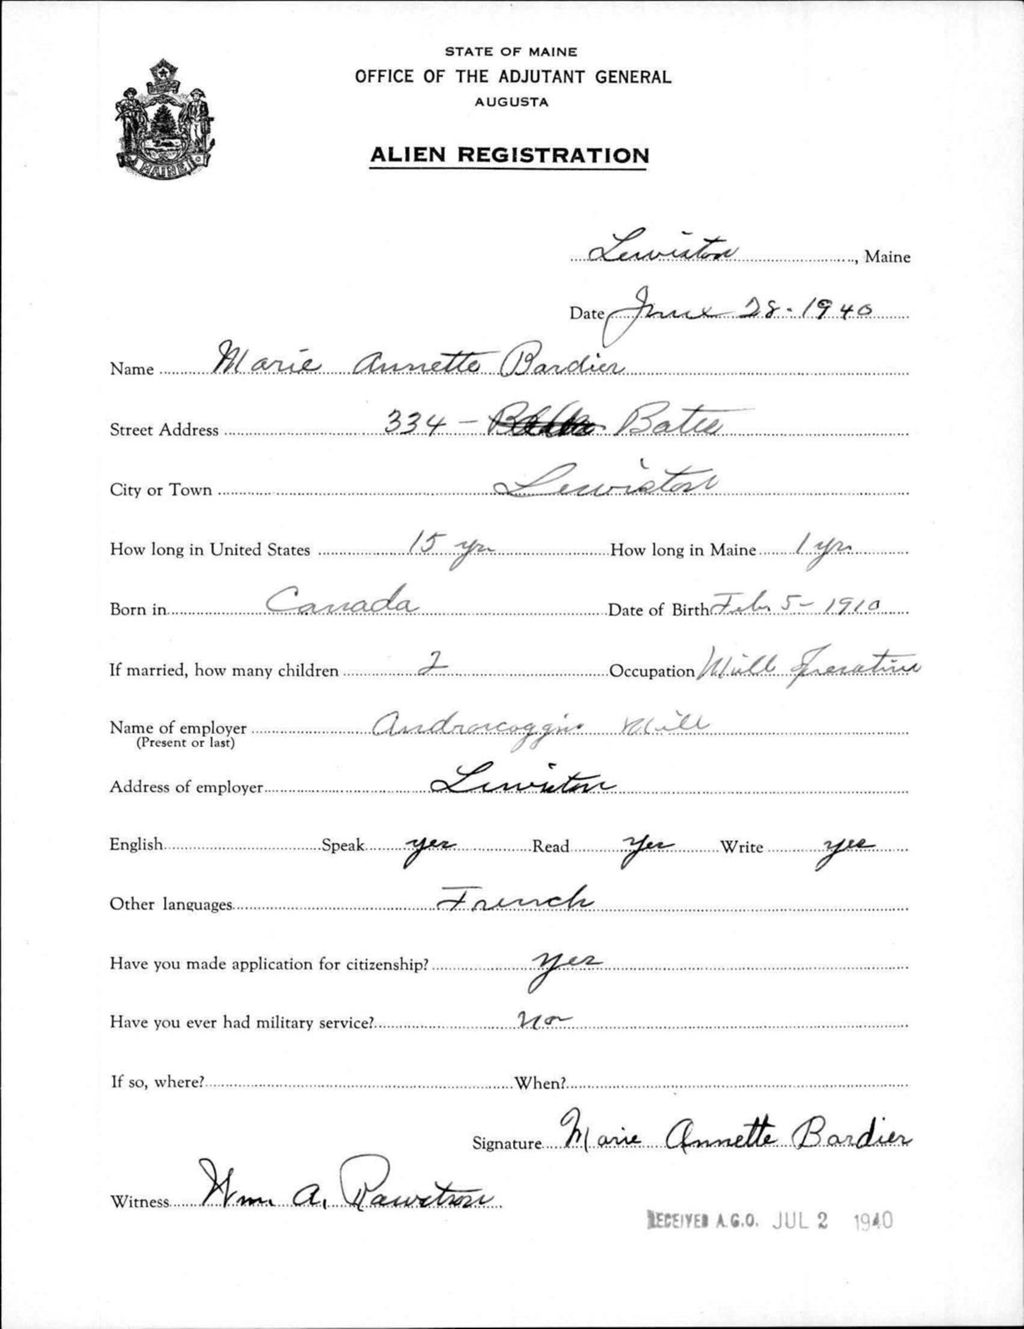 STATE OF MAINE
OFFICE OF THE ADJUTANT GENERAL
AUGUSTA
MAINE
ALIEN REGISTRATION
Lewiston, Maine
Date June 28 - 1940
Name Marie Annette Bardier
Street Address 334 - Bates
City or Town Lewiston
How long in United States 15 yr How long in Maine 1 yr.
Born in Canada Date of Birth Feb. 5 - 1910
If married, how many children 2 Occupation Mill Operative
Name of employer Androscoggin Mill
(Present or last)
Address of employer Lewiston
English Speak yes Read Yes Write yes
Other languages French
Have you made application for citizenship? Yes
Have you ever had military service? No
If so, where? When?
Signature Marie Annette Bardier
Witness Wm. A. Rawstron
RECEIVED A.G.O. JUL 2 1940